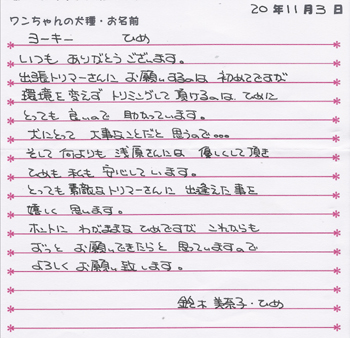 20年11月3日
ワンちゃんの犬種・お名前
ヨーキー ひめ
いつも ありがとうございます。
出張トリマーさんに お願いするのは 初めてですが
環境を変えず トリミングして頂けるのは、ひめに
とっても 良いので 助かっています。
犬にとって 大事なことだと 思うので…
そして 何よりも 浅原さんには 優しくして頂き
ひめも 私も 安心しています。
とっても素敵なトリマーさんに 出逢えた事を
嬉しく 思います。
ホントに わがままな ひめですが これからも
ずっと お願いできたらと 思っていますので
よろしく お願い致します。
鈴木 美奈子・ひめ